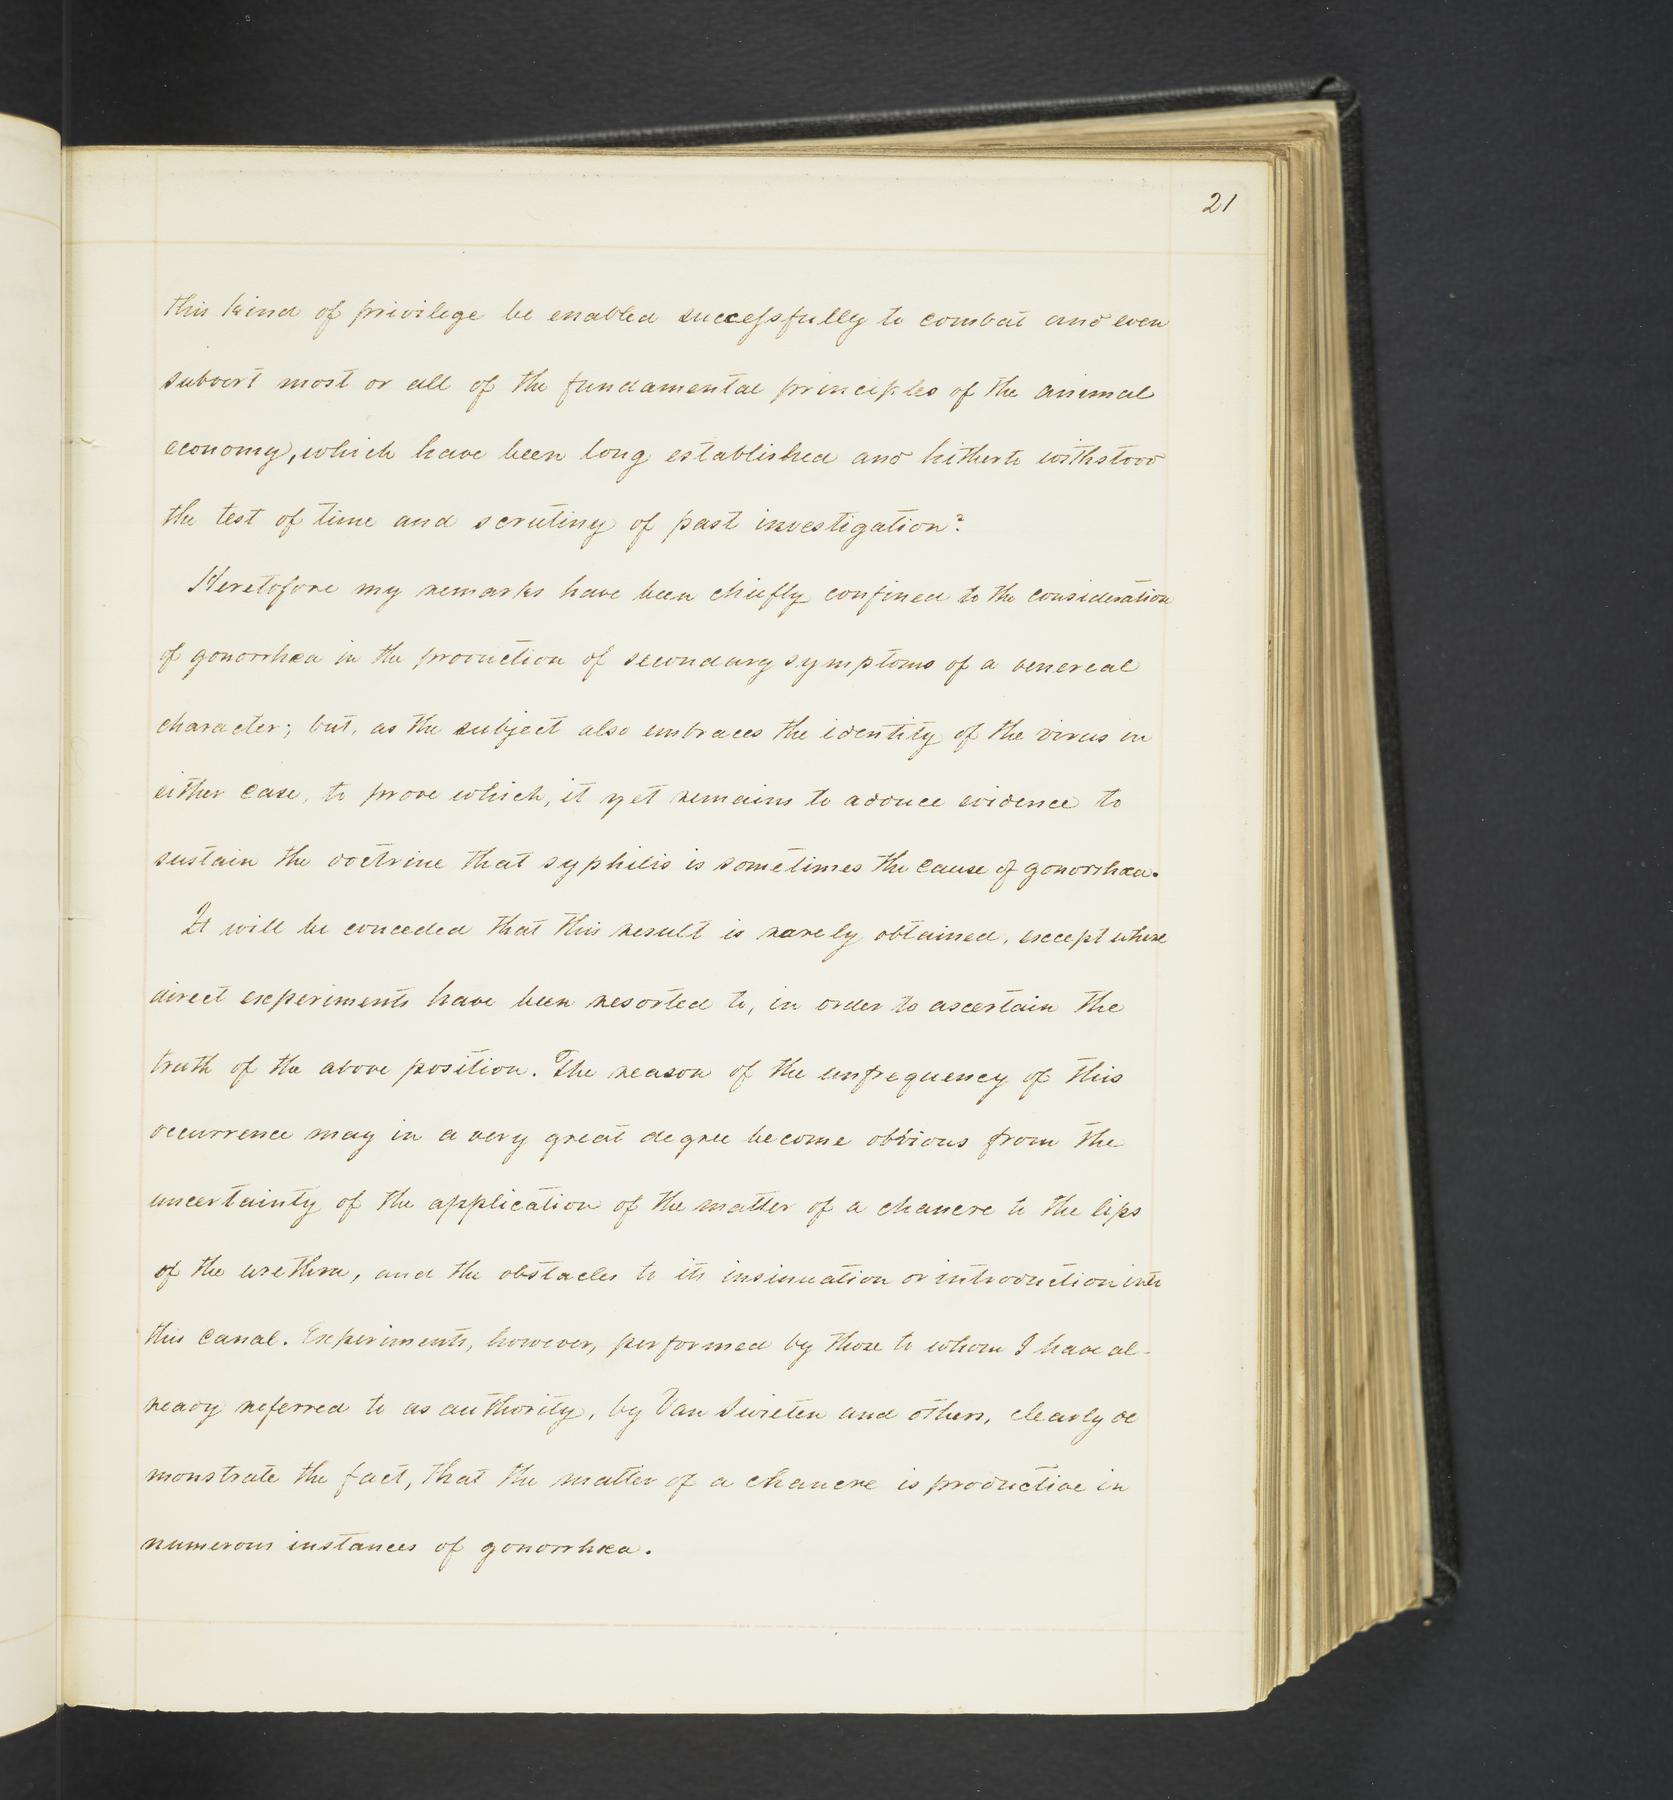 21
this kind of privilege be enabled successfully to combat and even
subvert most or all of the fundamental principles of the animal
economy, which have been long established and hitherto withstood
the test of time and scrutiny of past investigation?
Heretofore my remarks have been chiefly confined to the consideration
of gonorrhœa in the production of secondary symptoms of a venereal
character; but, as the subject also embraces the identity of the virus in
either case, to prove which, it yet remains to adduce evidence to
sustain the doctrine that syphilis is sometimes the cause of gonorrhœa.
It will be conceded that this result is rarely obtained, except where
direct experiments have been resorted to, in order to ascertain the
truth of the above position. The reason of the unfrequency of this
occurrence may in a very great degree become obvious from the
uncertainty of the application of the matter of a chancre to the lips
of the urethra, and the obstacles to its insinuation or introduction into
this canal. Experiments, however, performed by those to whom I have al-
ready referred to as authority, by Van Swieten and others, clearly de
monstrate the fact, that the matter of a chancre is productive in
numerous instances of gonorrhœa.